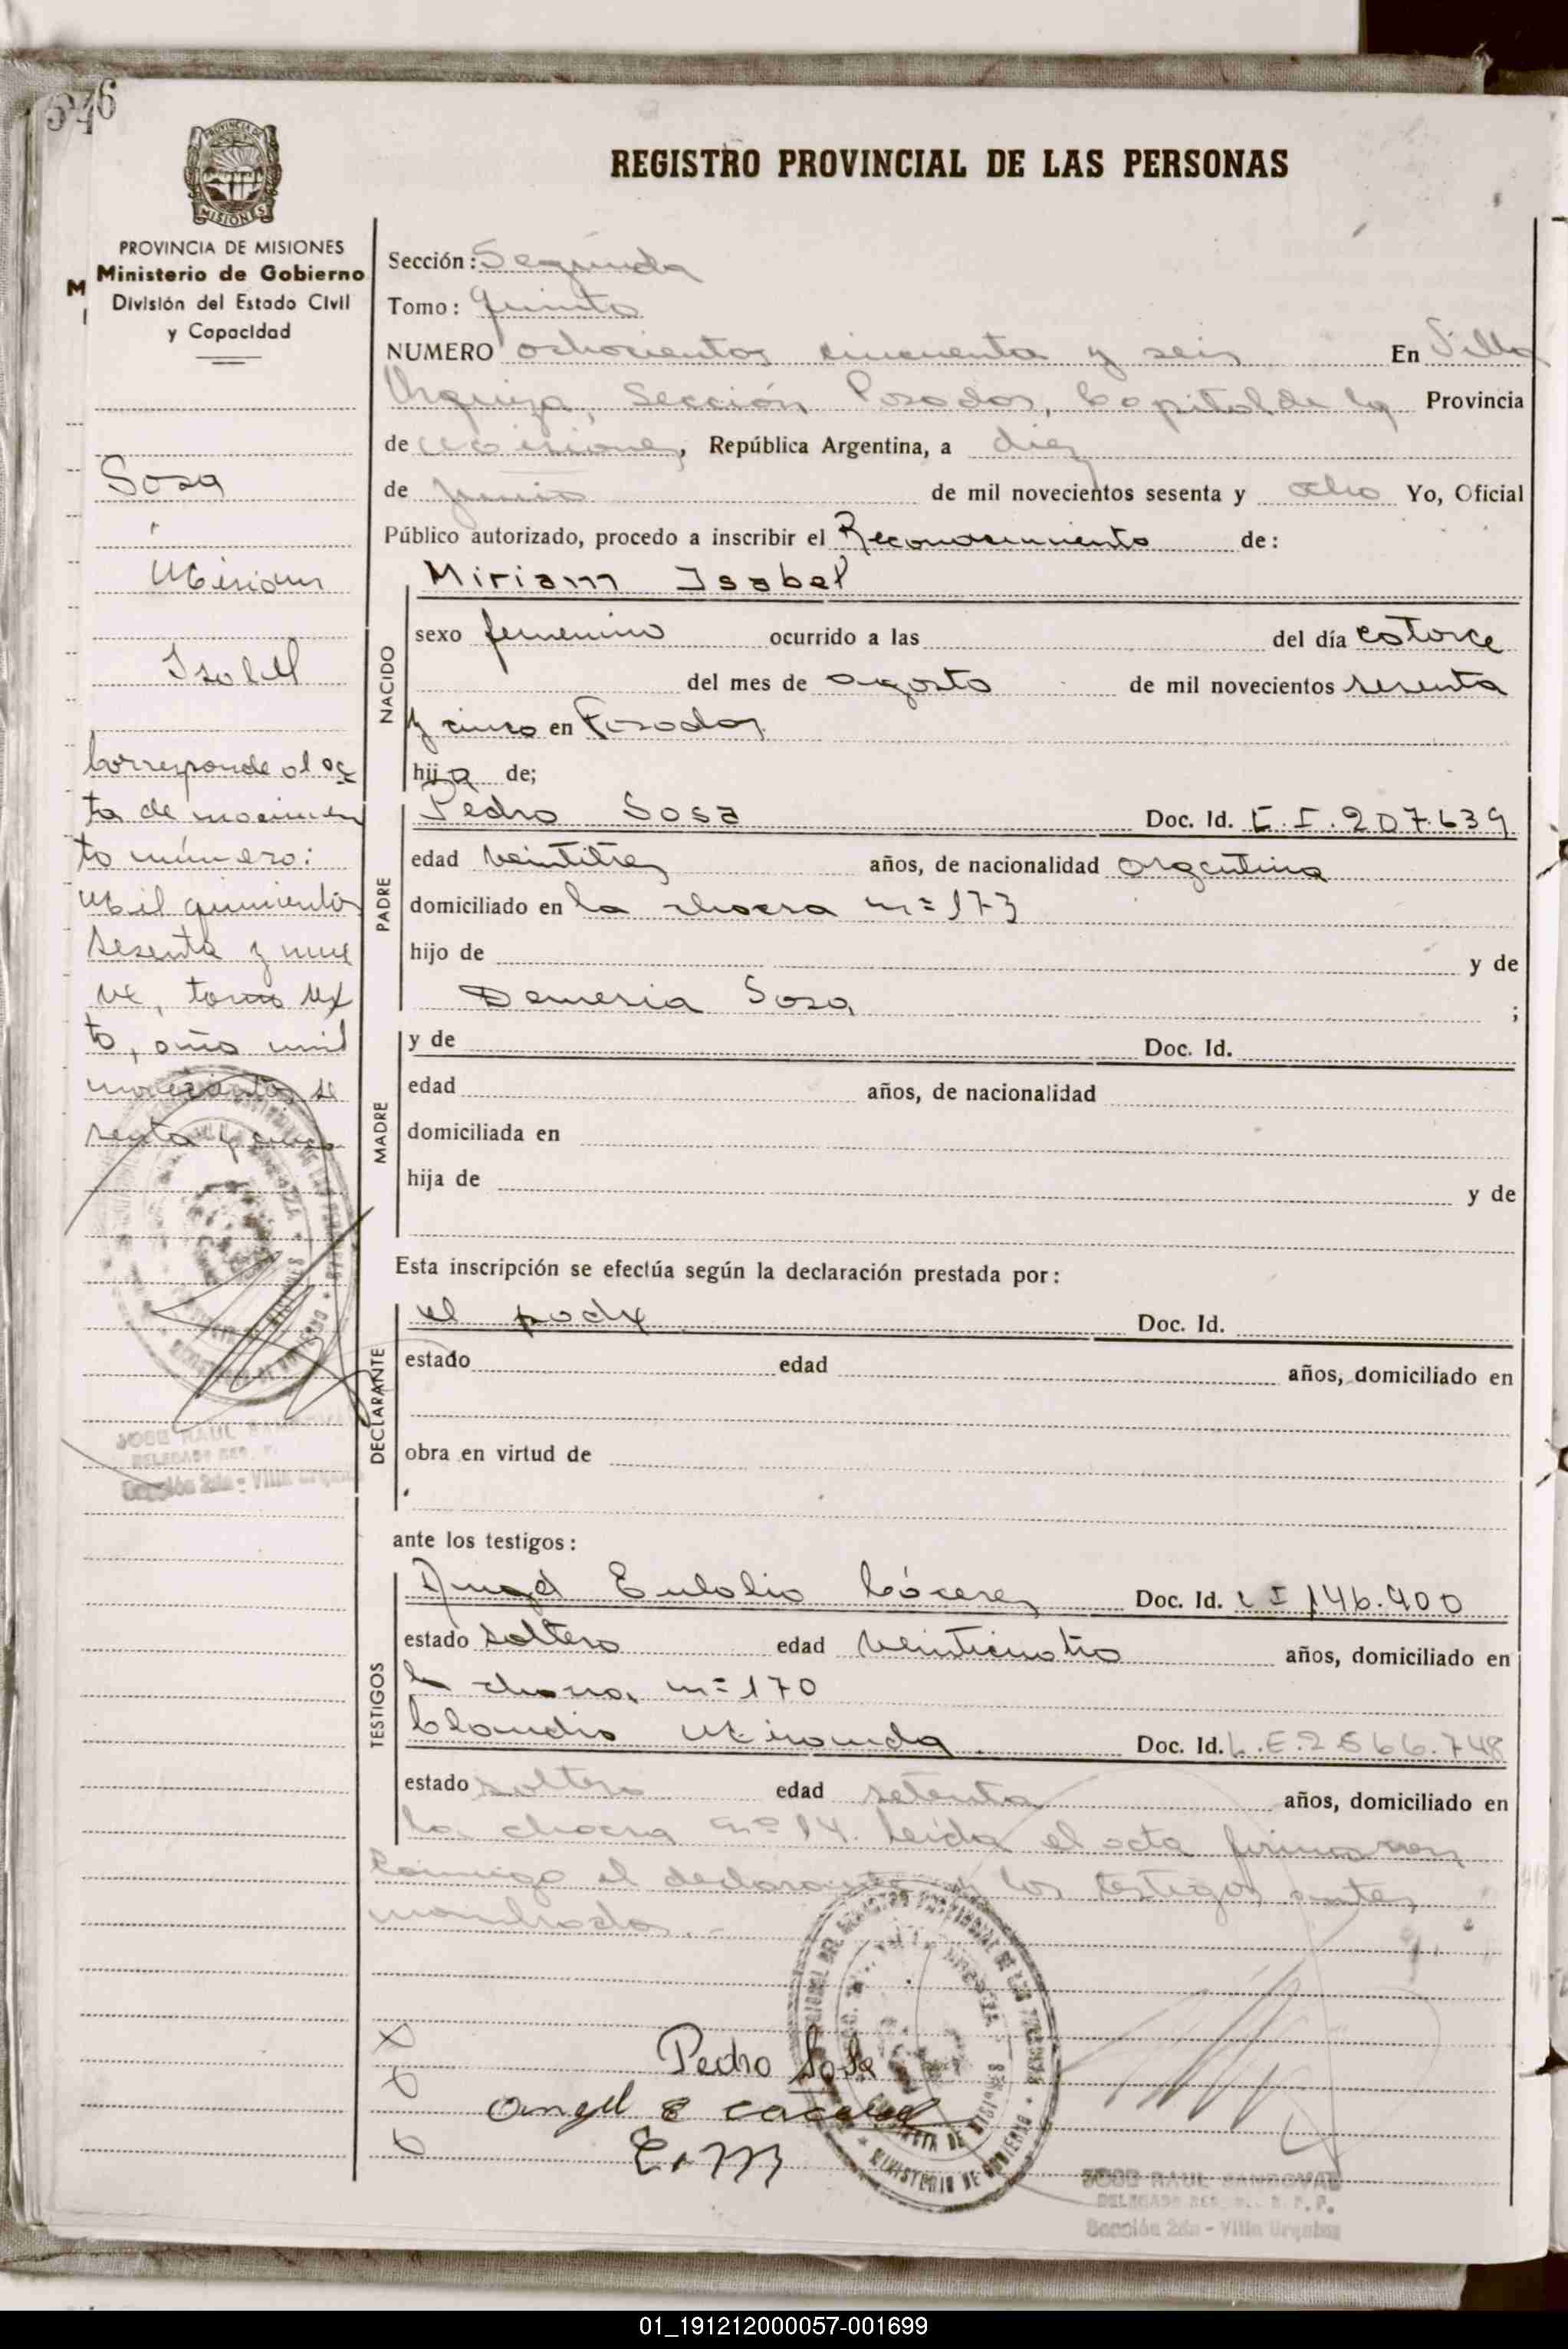 REGISTRO PROVINCIAL DE LAS PERSONAS
PROVINCIA DE MISIONES
Ministerio de Gobierno
División del Estado Civil
y Capacidad
Sosa
Miriam
Isabel
Corresponde al ac
ta de nacimien
to número:
Mil quinientos
sesenta y nue
ve, tomo sex
to, año mil
novecientos se
senta y cinco
Sección: Segunda
Tomo: Quinto
NUMERO ochocientos cincuenta y seis En Villa
Urquiza, Sección Posadas, Capital de la Provincia
de Misiones, República Argentina, a diez
de junio de mil novecientos sesenta y ocho Yo, Oficial
Público autorizado, procedo a inscribir el Reconocimiento de:
Miriam Isabel
NACIDO
sexo femenino ocurrido a las del día catorce
del mes de agosto de mil novecientos sesenta
y cinco en Posadas
hija de;
PADRE
Pedro Sosa Doc. Id. C.I. 207.639
edad veintitres años, de nacionalidad argentina
domiciliado en la chacra nº 173
hijo de y de
Demesia Sosa ;
MADRE
y de Doc. Id.
edad años, de nacionalidad
domiciliada en
hija de y de
Esta inscripción se efectúa según la declaración prestada por:
DECLARANTE
el padre Doc. Id.
estado edad años, domiciliado en
obra en virtud de
ante los testigos:
TESTIGOS
Angel Eulalio Cáceres Doc. Id. C I 146.900
estado soltero edad veinticuatro años, domiciliado en
la chacra nº 170
Claudio Miranda Doc. Id. L.E. 2566.748
estado soltero edad setenta años, domiciliado en
la chacra nº 14. Leída el acta firman
conmigo el declarante y los testigos antes
nombrados.-
Pedro Sosa
Angel E Caceres
C. M
JOSE RAUL SANDOVAL
Sección 2da - Villa Urquiza
01_191212000057-001699